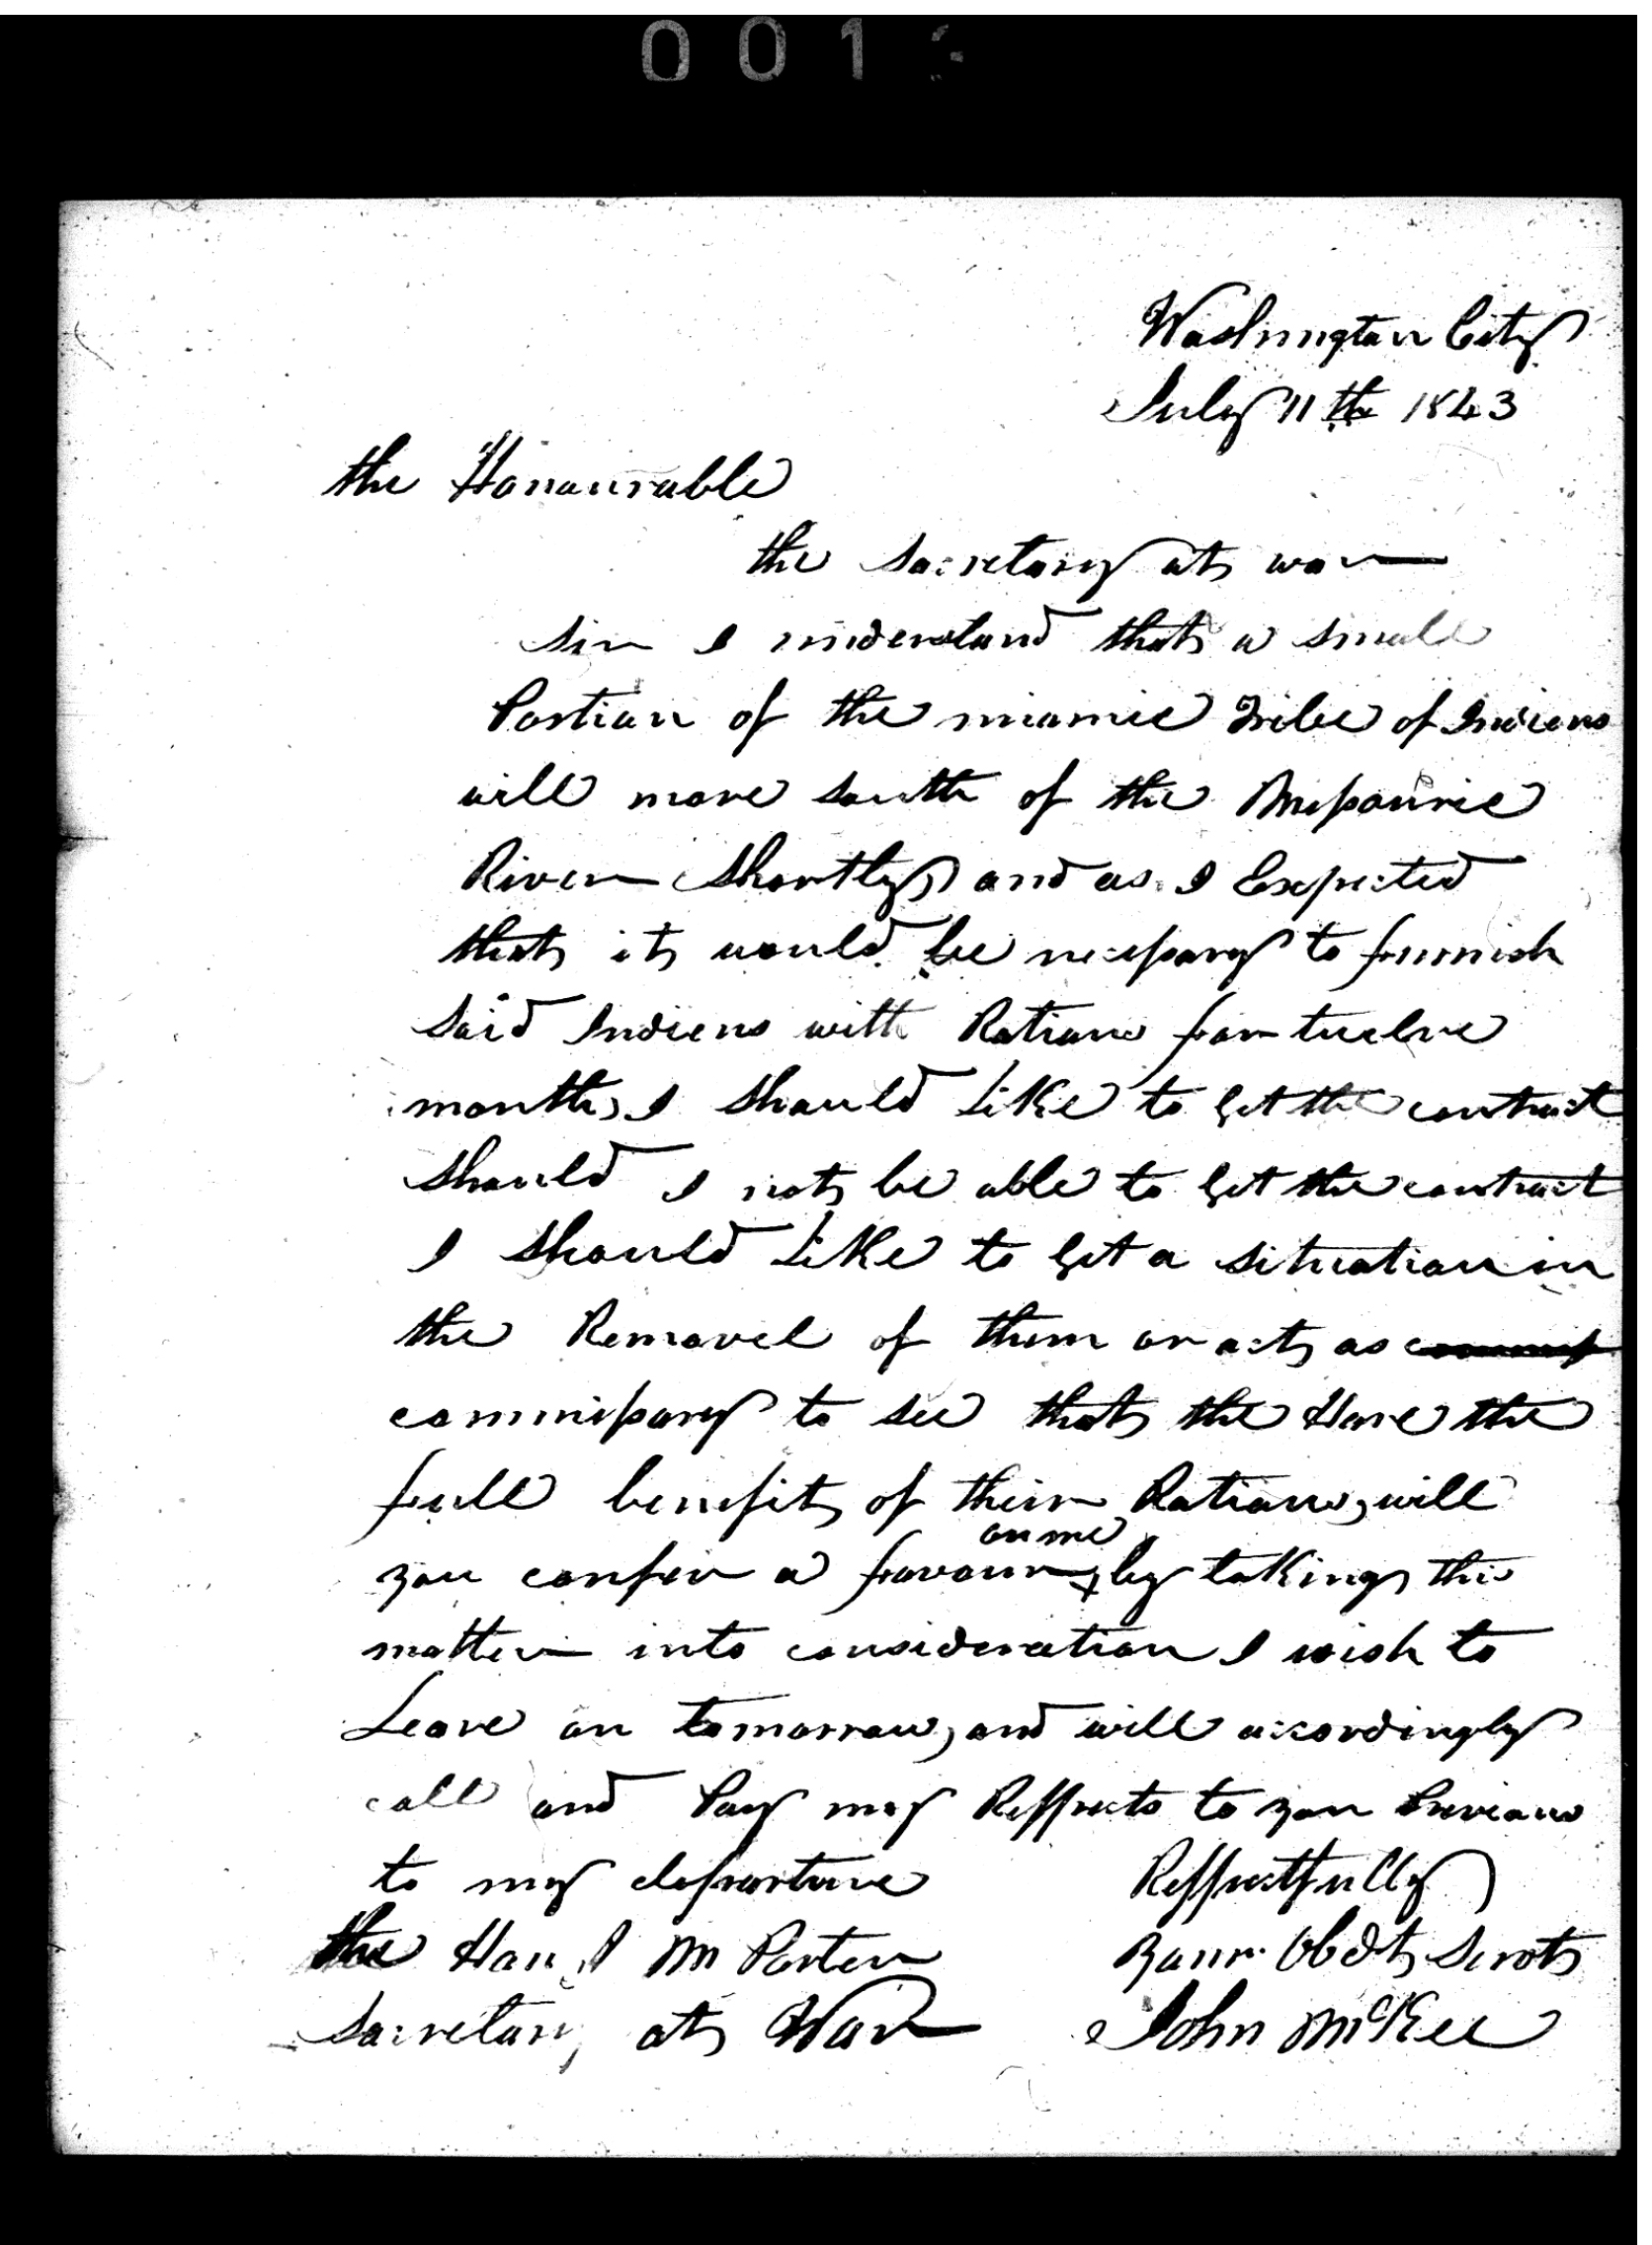 001
Washington City
July 11th 1843
the Honourable
the Secretary at war
Sir I understand that a small
Portion of the miamie Tribe of Indiens
will move south of the Missourie
River shortly, and as I Expected
that it would be necessary to furnish
said Indiens with Rations for twelve
months, I should Like to get the contract
should I not be able to get the contract
I should Like to get a situation in
the Removel of them or act as
commissary to see that the Have the
full benefit of their Rations, will
you confer a favour on me by taking this
matter into consideration I wish to
Leave on tomorrow, and will accordingly
call and Pay my Respects to you Previous
to my departure Respectfully
the Hon J M Porter Your Obdt Servt
Secretary at War John McKee